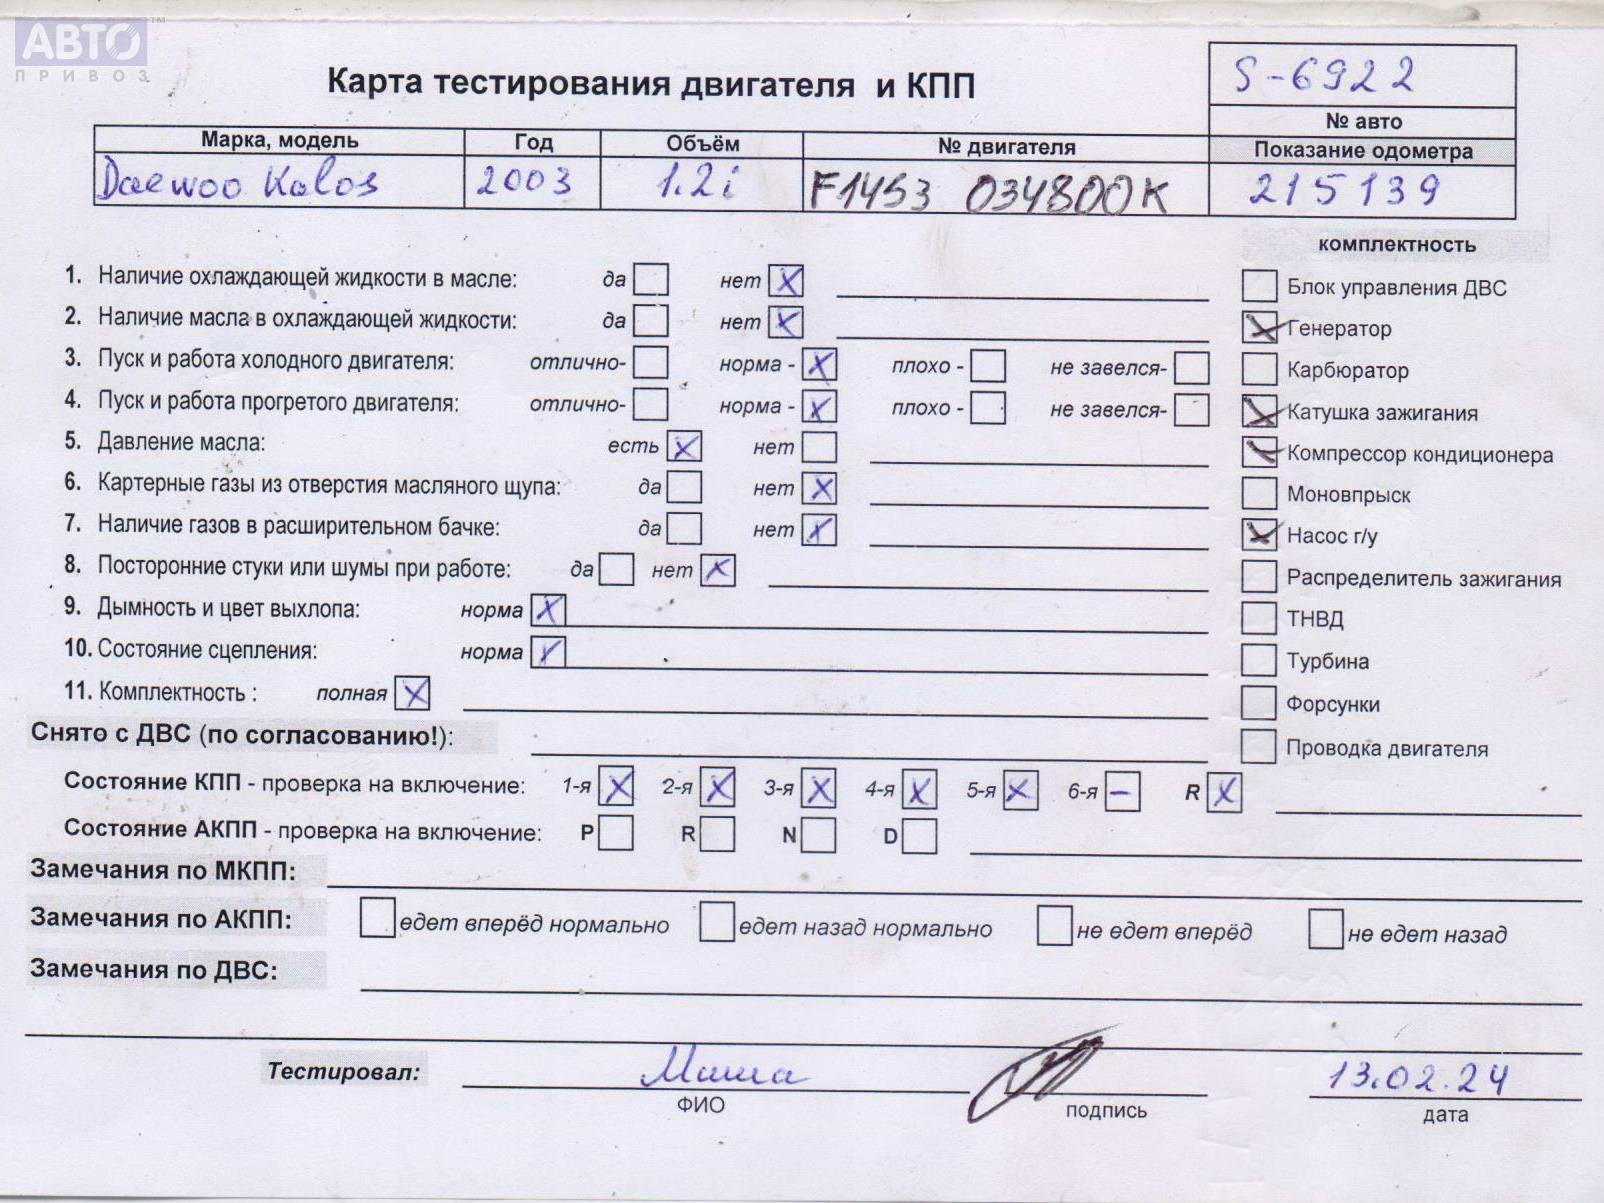 АВТО™
ПРИВОЗ
Карта тестирования двигателя и КПП
S-6922
№ авто
Марка, модель Год Объём № двигателя Показание одометра
Daewoo Kalos 2003 1.2i F14S3 034800K 215139
комплектность
1. Наличие охлаждающей жидкости в масле: да нет X
Блок управления ДВС
2. Наличие масла в охлаждающей жидкости: да нет X
X Генератор
3. Пуск и работа холодного двигателя: отлично- норма - X плохо - не завелся-
Карбюратор
4. Пуск и работа прогретого двигателя: отлично- норма - X плохо - не завелся-
X Катушка зажигания
5. Давление масла: есть X нет
X Компрессор кондиционера
6. Картерные газы из отверстия масляного щупа: да нет X
Моновпрыск
7. Наличие газов в расширительном бачке: да нет X
X Насос г/у
8. Посторонние стуки или шумы при работе: да нет X
Распределитель зажигания
9. Дымность и цвет выхлопа: норма X
ТНВД
10. Состояние сцепления: норма X
Турбина
11. Комплектность : полная X
Форсунки
Снято с ДВС (по согласованию!):
Проводка двигателя
Состояние КПП - проверка на включение: 1-я X 2-я X 3-я X 4-я X 5-я X 6-я – R X
Состояние АКПП - проверка на включение: P R N D
Замечания по МКПП:
Замечания по АКПП: едет вперёд нормально едет назад нормально не едет вперёд не едет назад
Замечания по ДВС:
Тестировал: Миша 13.02.24
ФИО подпись дата